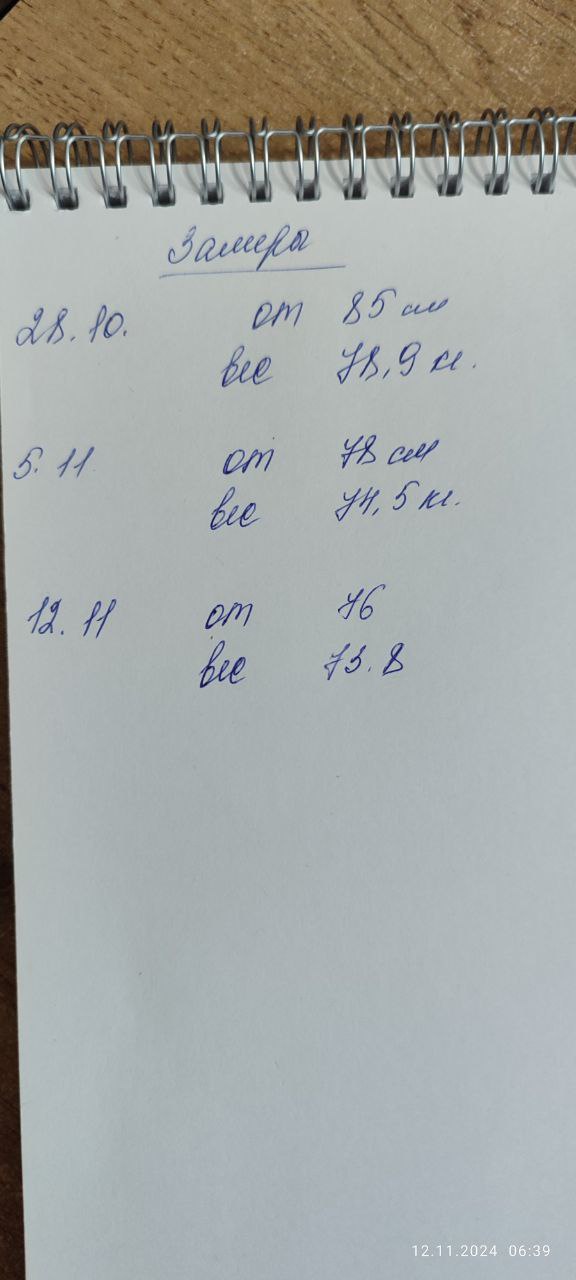 Замеры
28.10. от 85 см
вес 78,9 кг.
5.11 от 78 см
вес 74,5 кг.
12.11 от 76
вес 73.8
12.11.2024 06:39